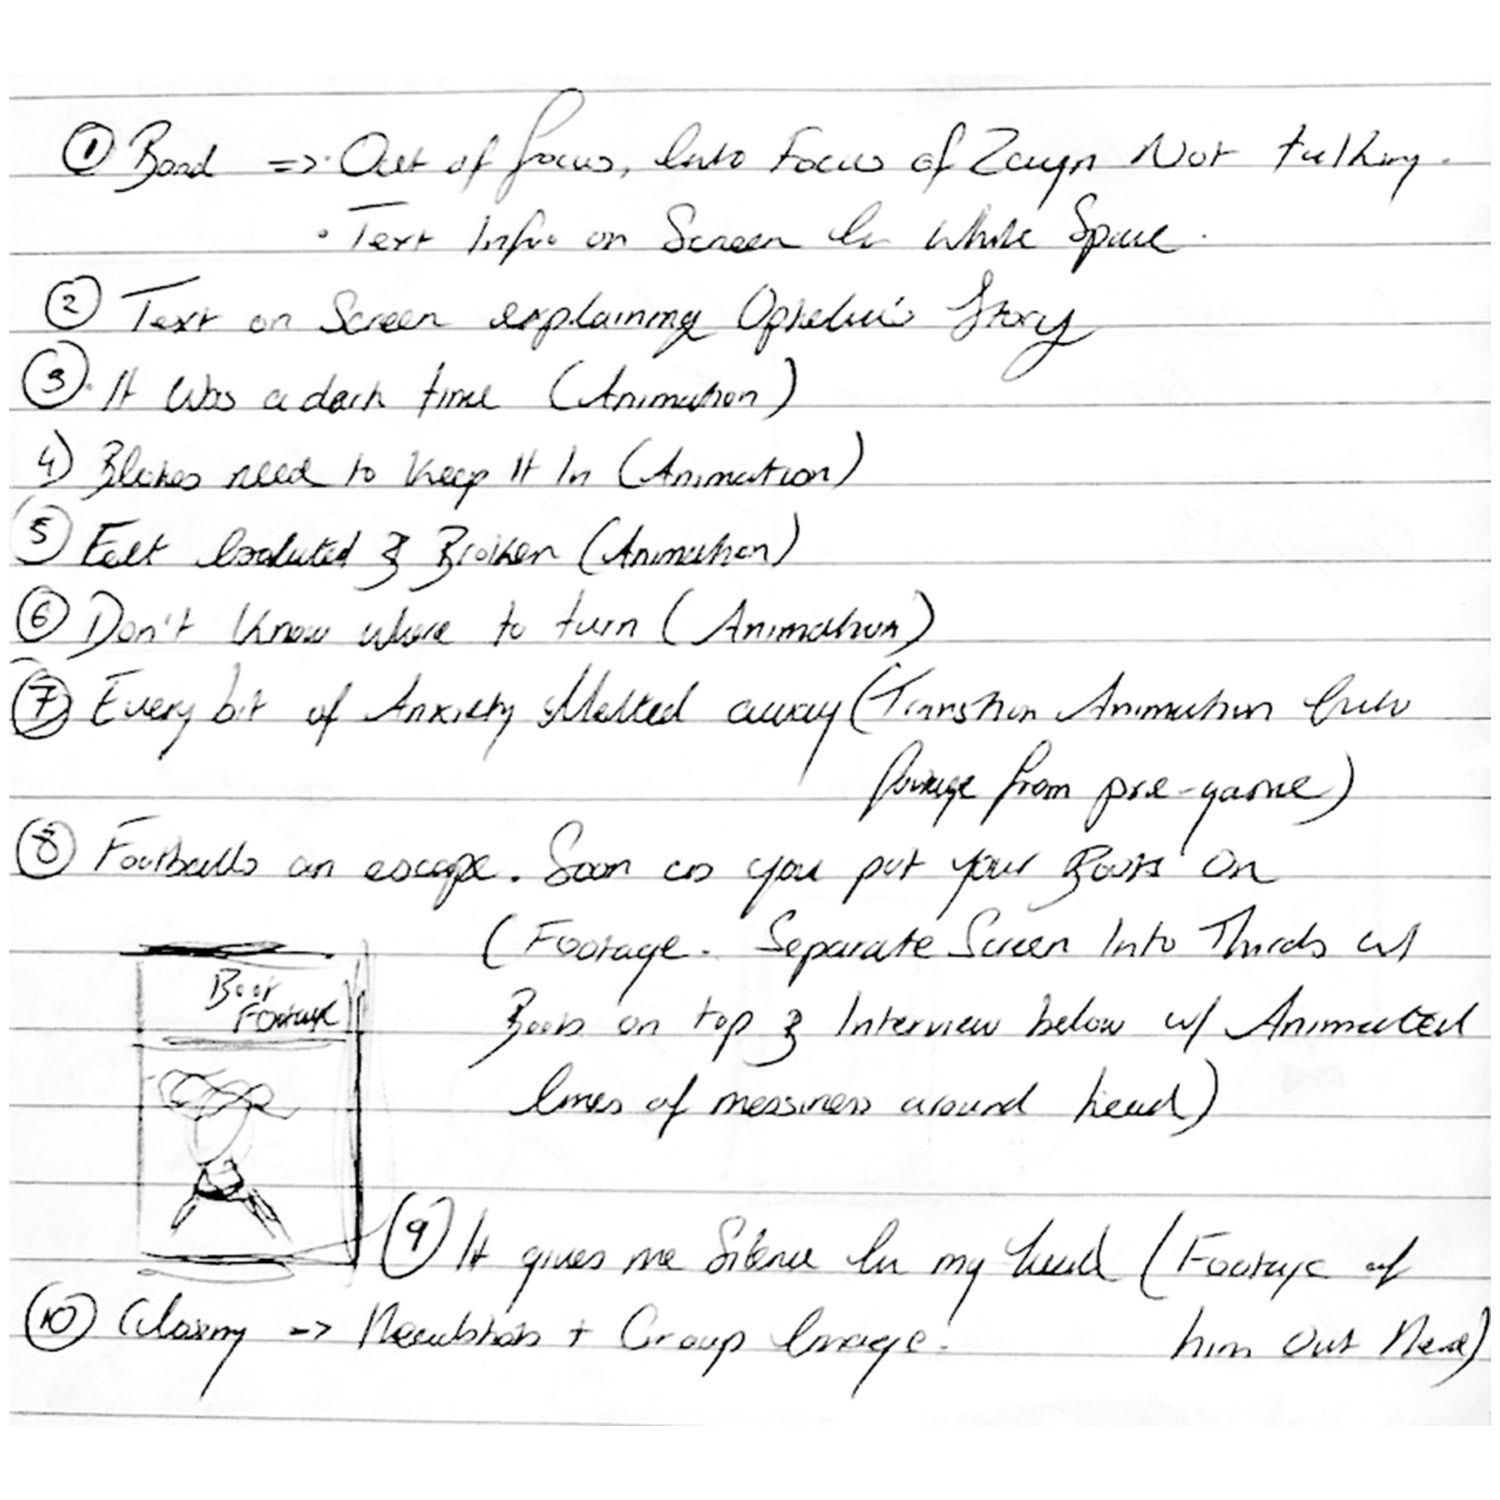 ① Bond => · Out of focus, Into Focus of Zayn Not talking.
· Text Info on Screen In White Space.
② Text on Screen explaining Ophelia's Story
③. It Was a dark time (Animation)
4) Blokes need to Keep It In (Animation)
⑤ Felt Isolated & Broken (Animation)
⑥ Don't Know where to turn (Animation)
⑦ Every bit of Anxiety Melted away (Transition Animation Into
footage from pre-game)
⑧ Footballs an escape. Soon as you put your Boots On
(Footage. Separate Screen Into Thirds w/
Boot
Footage
Boots on top & Interview below w/ Animated
lines of messiness around head)
⑨ It gives me Silence In my head (Footage of
him Out Here)
⑩ Closing -> Headshots + Group Image.